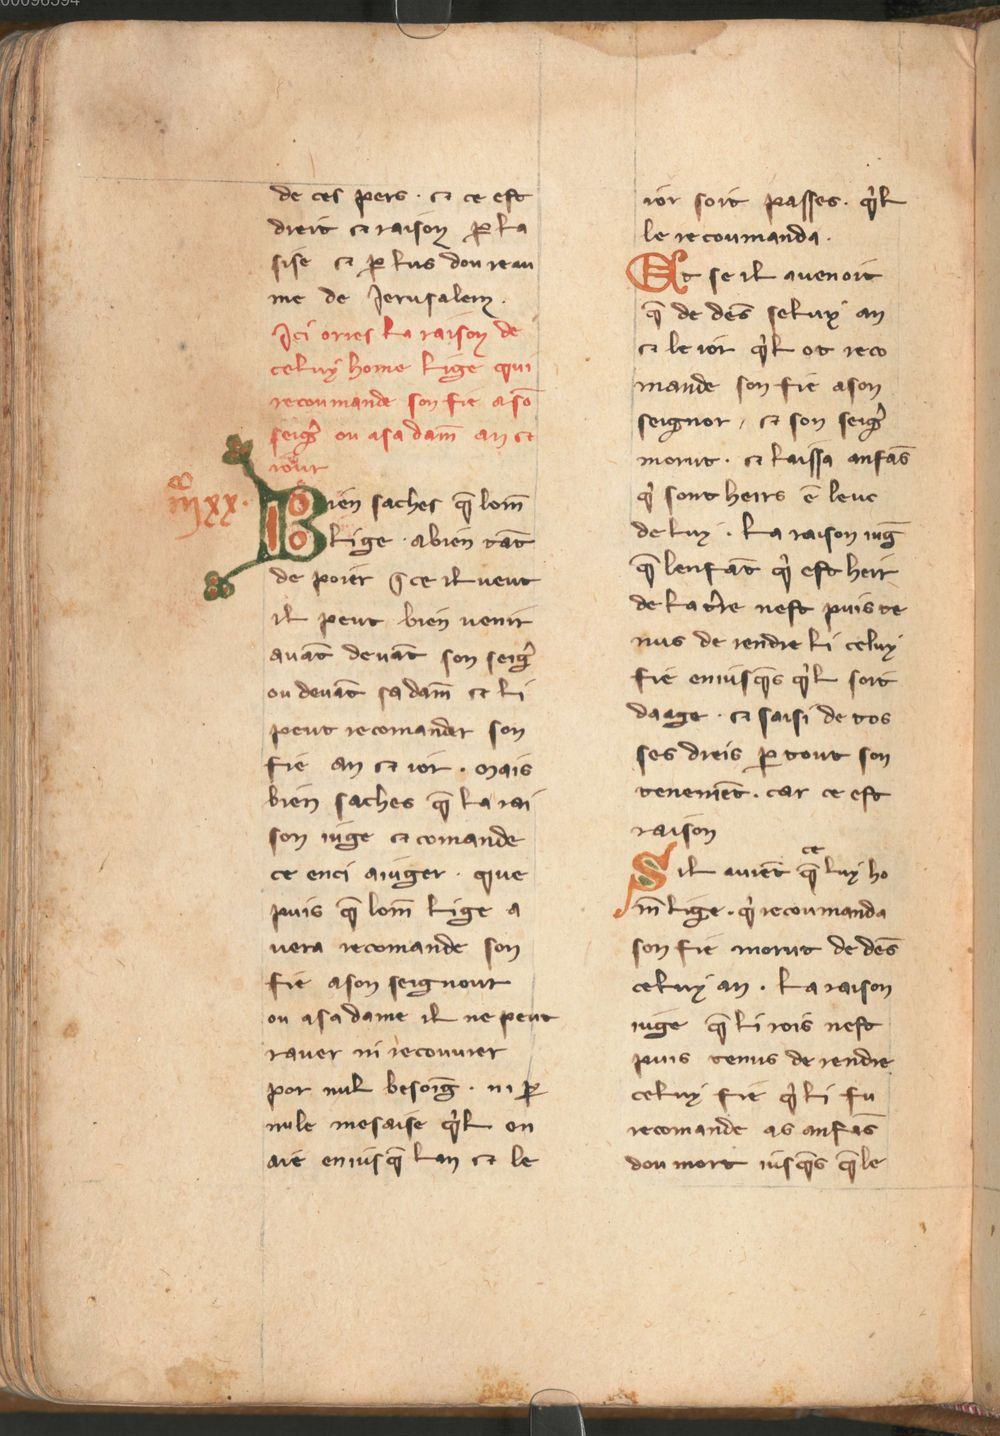 de ces pers · ⁊ ce est
dreit ⁊ raison ꝑ la
sise ⁊ ꝑ lus dou reau
me de Jerusalem .
Ici ories la raison de
celuy home lige qui
recoumande son fie a sō
seigr̄ ou a sa dam̄ an ⁊
iour
iiii xx.
Bien saches q̄ lom̄
lige · a bien tāt
de poier
il peut bien venir
auāt deuāt son seigr̄
ou deuāt sa dam̄ ⁊ li
peut recomander son
fie an ⁊ ior . mais
bien saches q̄ la rai
son iuge ⁊ comande
ce enci a iuger · que
puis q̄ lom̄ lige a
uera recomande son
fie a son seignour
ou a sa dame il ne peut
rauer ni recouurer
por nul besoiḡ · ni ꝑ
nule mesaise qͥl en
aie eniusq̄ lan ⁊ le
ior soit passes · qͥl
le recoumanda ·
Et se il auenoit
q̄ de dēs seluy an
⁊ le ior qͥl ot reco
mande son fie a son
seignor / ⁊ son seigr̄
morut · ⁊ laissa anfās
qͥ sont heirs ē leue
de luy . la raison iuḡ
q̄ lenfāt qͥ est heir
de la t̄re nest puis te
nus de rendre li celuy
fie eniusq̄s qͥl soit
daage · ⁊ saisi de tos
ses dreis ꝑ tout son
teneniēt · car ce est
raison
Sil auiēt q̄ celuy ho
m̄ lige · qͥ recoumanda
son fie morut de dēs
celuy an · la raison
iuge q̄ li rois nest
puis tenus de rendre
celuy fie qͥ li fu
recomande as anfās
dou mort iusq̄s q̄ le